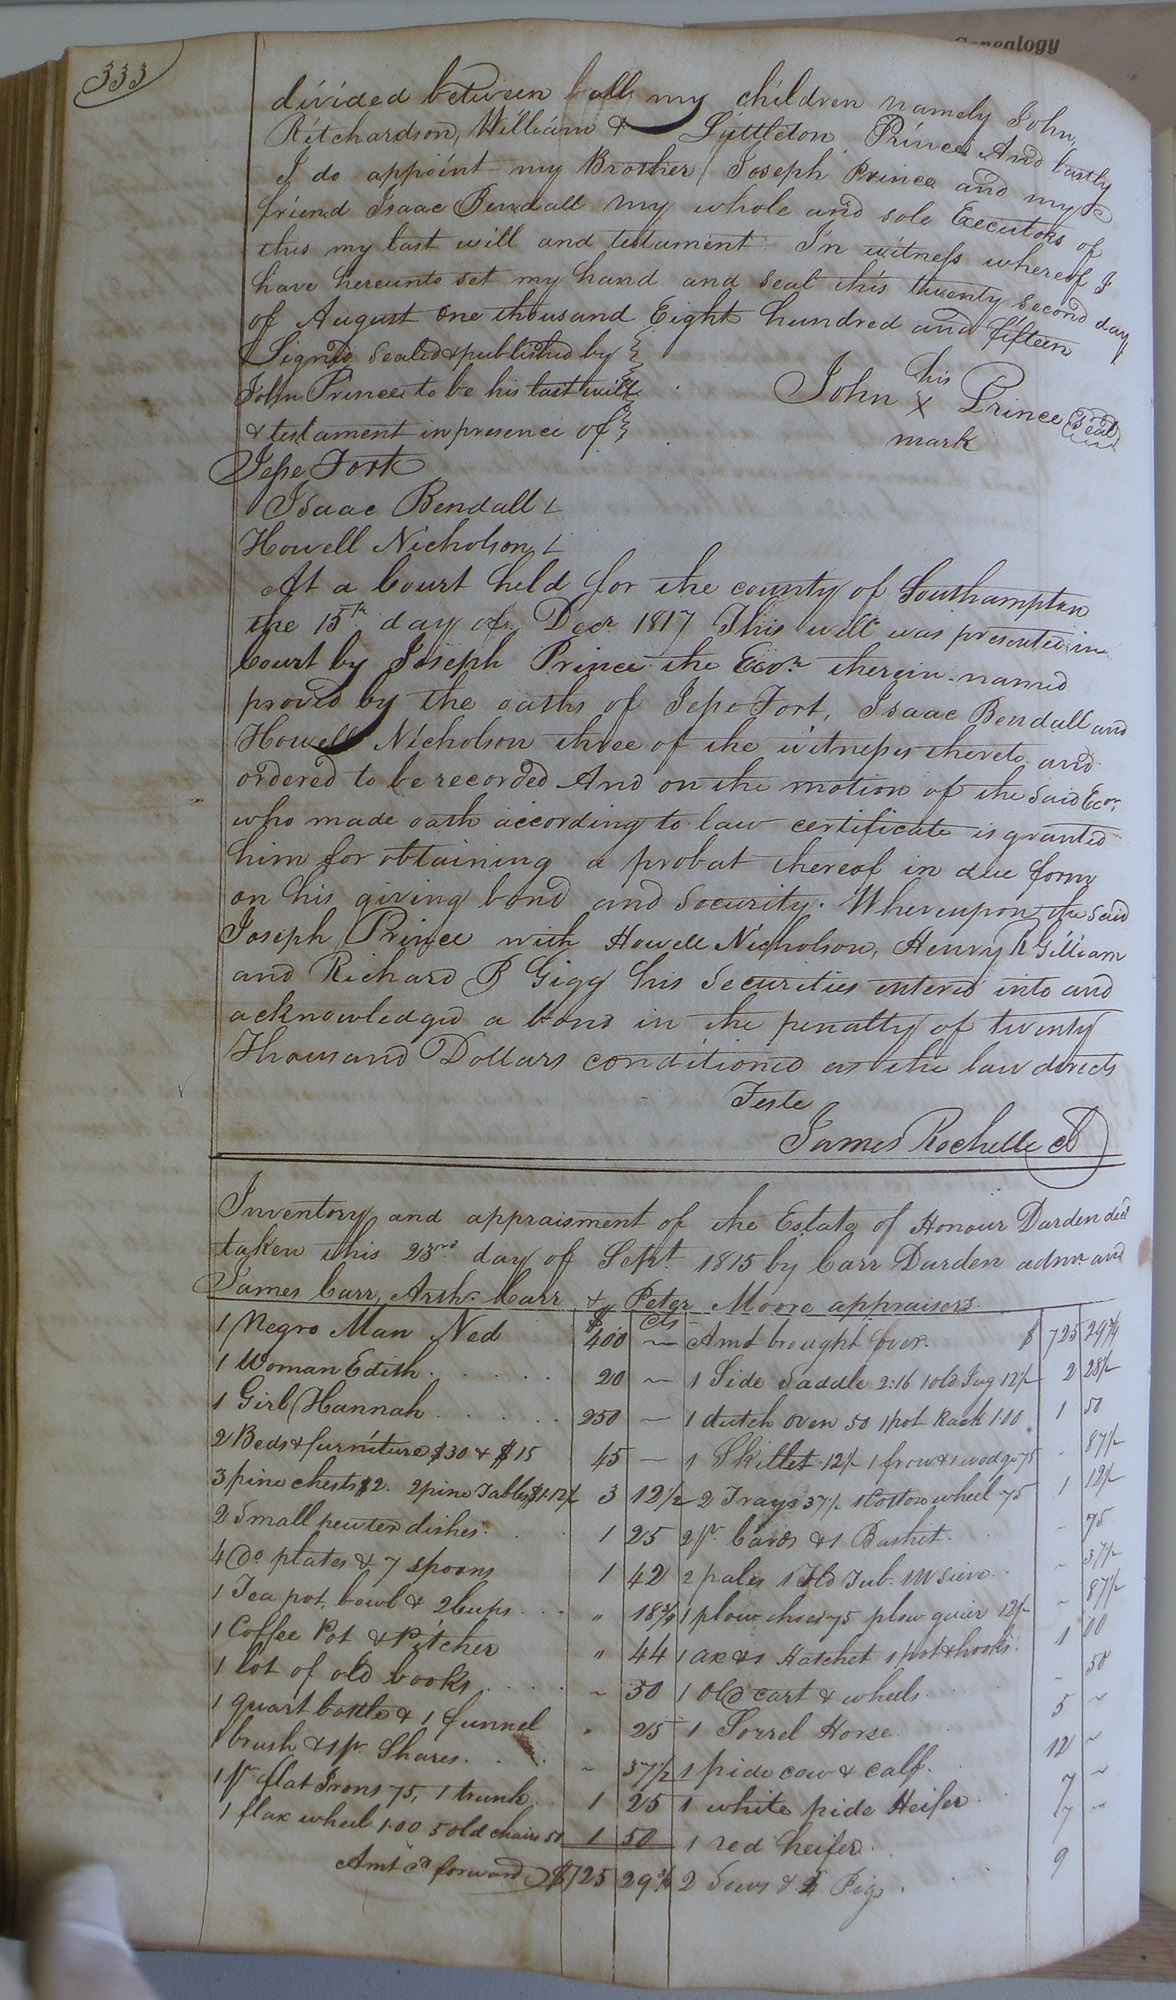 Genealogy
333
divided between all my children namely John,
Ritchardson, William & Littleton Prince And lastly
I do appoint my Brother Joseph Prince and my
friend Isaac Bendall my whole and sole Executors of
this my last will and testament In witness whereof I
have hereunto set my hand and seal this twenty second day
of August One thousand Eight hundred and fifteen
Signed sealed & published by
John Prince to be his last will
& testament in presence of
his
John X Prince Seal
mark
Jesse Fort
Isaac Bendall
Howell Nicholson
At a Court held for the county of Southampton
the 15th day of Decr 1817 This will was presented in
Court by Joseph Prince the Exor therein named
proved by the oaths of Jesse Fort, Isaac Bendall and
Howell Nicholson three of the witnesses thereto and
ordered to be recorded And on the motion of the said Exor
who made oath according to law certificate is granted
him for obtaining a probat thereof in due form
on his giving bond and security. Whereupon the said
Joseph Prince with Howell Nicholson, Henry R Gilliam
and Richard B Gigg his Securities entered into and
acknowledged a bond in the penalty of twenty
Thousand Dollars conditioned as the law directs
Teste
James Rochelle
Inventory and appraisment of the Estate of Honour Darden decd
taken this 23rd day of Sept. 1815 by Carr Darden admr and
James Carr, Arthr Carr & Peter Moore appraisers
$ Cts
1 Negro Man Ned 400 ~
1 Woman Edith 20 ~
1 Girl Hannah 250 ~
2 Beds & furniture $30 & $15 45 ~
3 pine chests $2. 2 pine Tables $1.12½ 3 12½
2 Small pewter dishes 1 25
4 Do plates & 7 spoons 1 42
1 Tea pot, bowl & 2 Cups " 18¾
1 Coffee Pot & Pitcher " 44
1 lot of old books ~ 50
1 quart bottle & 1 funnel " 25
1 brush & 1 pr. Shares ~ 37½
1 pr flat Irons 75, 1 trunk 1 25
1 flax wheel 1.00 5 old chairs 50 1 50
Amt cd forward $725 29¾
Amt brought over $ 725 29¾
1 Side Saddle 2:16 1 old Jug 12½ 2 28½
1 dutch oven 50 1 pot Rack 1.00 1 50
1 Skillet 12½ 1 frow & 1 wedge 75 " 87½
2 Trays 37½ 1 Cotton wheel 75 1 12½
2 pr. Cards & 1 Basket ~ 75
2 pales 1 Tub. 1 Sieve ~ 37½
1 plow 75 plow 12½ ~ 87½
1 ax & 1 Hatchet 1 pot & hooks 1 00
1 old cart & wheels ~ 50
1 Sorrel Horse 5 ~
1 pide cow & calf 12 ~
1 white pide Heifer 7 ~
1 red heifer 7 ~
2 Sows & Pigs 9